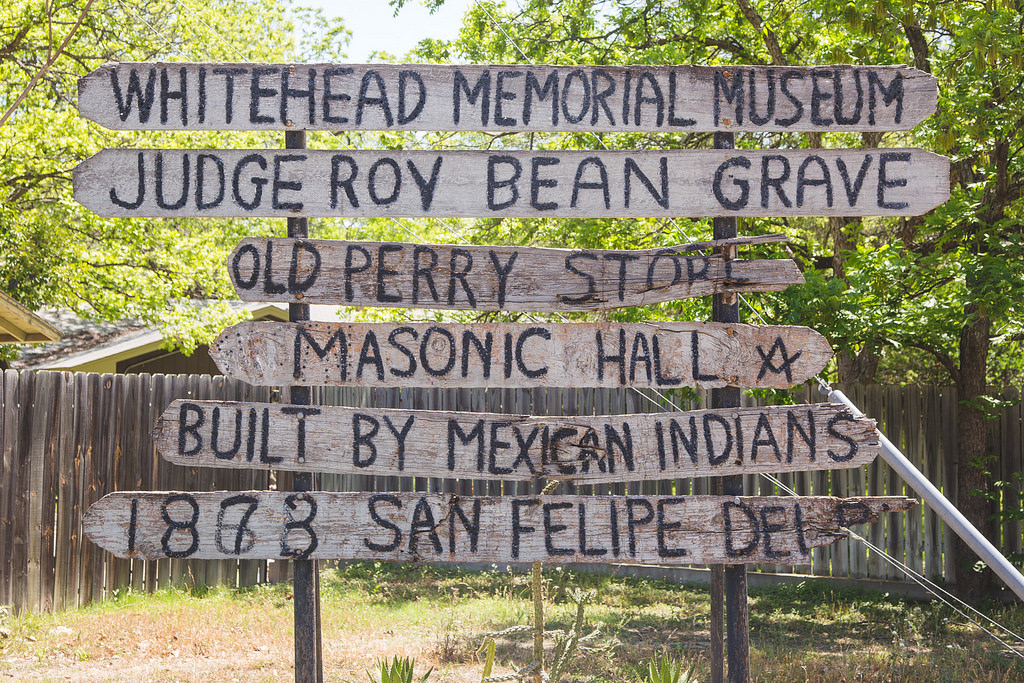 WHITEHEAD MEMORIAL MUSEUM
JUDGE ROY BEAN GRAVE
OLD PERRY STORE
MASONIC HALL
BUILT BY MEXICAN INDIANS
SAN FELIPE DEL